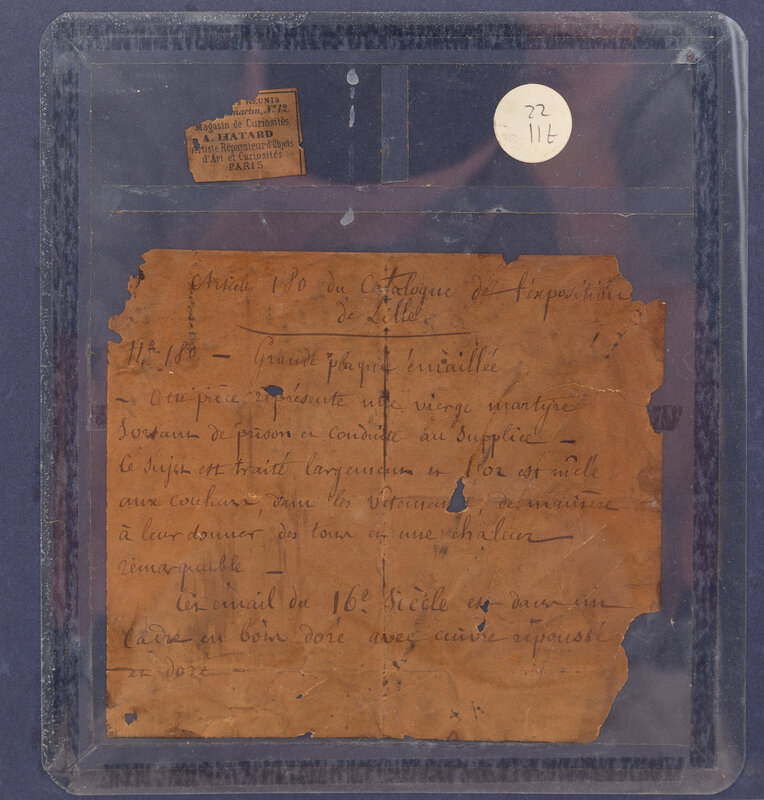 REUNIS
Nº 12.
Magasin de Curiosités,
A. HATARD
Artiste Réparateur d'Objets
d'Art et Curiosités
PARIS
22
117
Article 180 du Catalogue de l'exposition
de Lille.
180 – Grande plaque émaillée
– Cette pièce représente une vierge martyre
sortant de prison et conduite au supplice –
Ce sujet est traité largement et l'or est mêlé
aux couleurs, dans les vêtements, de manière
à leur donner des tons et une chaleur
remarquable –
Cet émail du 16e Siècle est dans un
cadre en bois doré avec cuivre repoussé
et doré